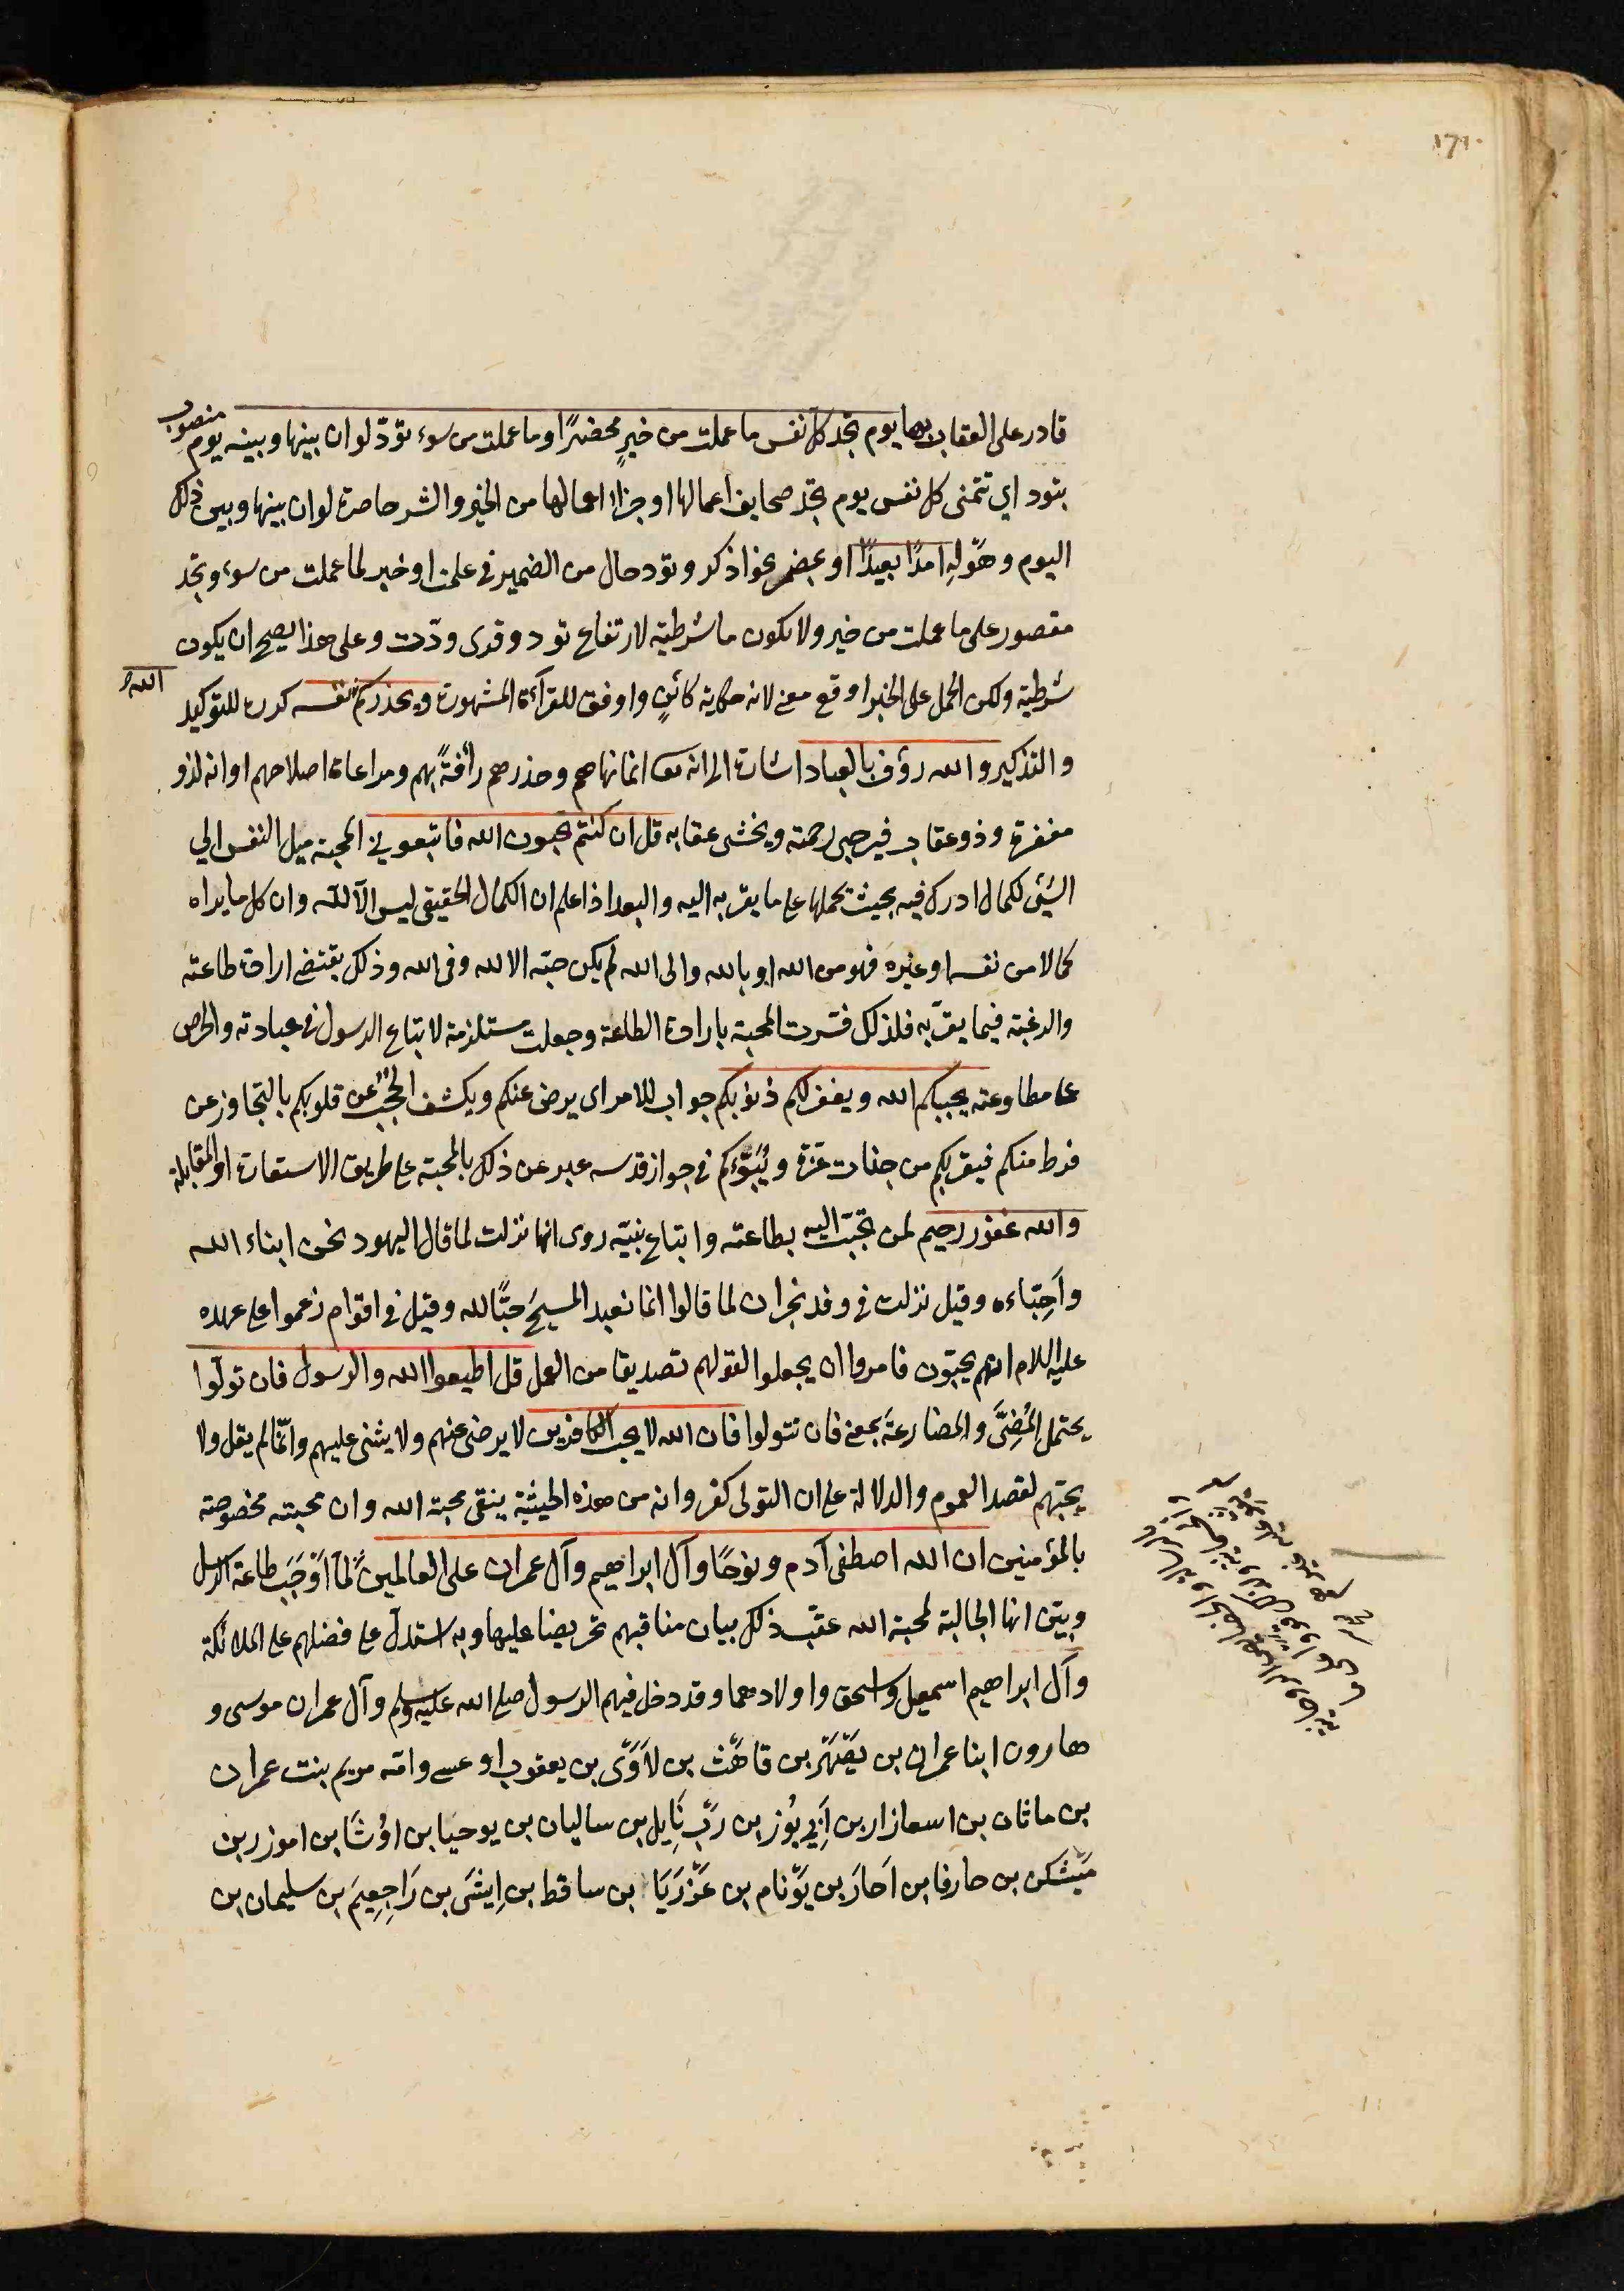 ١٦٠
قادر على العقاب بها يوم تجد كل نفس ما عملت من خيرٍ محضرًا وما عملت من سوء تودّ لو ان بينها وبينه يوم منصوب
بتود اي تتمنى كل نفس يوم تجد صحايف اعمالها او جزاا اعمالها من الخير والشر حاضرة لو ان بينها وبين ذلك
اليوم وهَوْلِهِ امدًا بعيدًا او بمضمر نحو اذكر وتود حال من الضمير في عملت او خبر لما عملت من سوء وتجد
مقصور على ما عملت من خير ولا يكون ما شرطية لارتفاع تود وقرى ودّت وعلى هذا يصح ان يكون
شرطية ولكن الحمل على الخبر اوقع معنى لانه حكاية كائنٍ واوفق للقرآءة المشهورة ويحذركم الله نفسه كرره للتوكيد
والتذكير والله رؤف بالعباد اشارة الى انه تعا انما نهاهم وحذرهم رأفةً بهم ومراعاة اصلاحهم او انه لذو
مغفرة وذو عقاب فيرجى رحمته ويخشى عقابه قل ان كنتم تحبون الله فاتبعوني المحبة ميل النفس الي
الشئ لكمال ادرك فيه بحيث يحملها على ما يقربه اليه والعبد اذا علم ان الكمال الحقيقي ليس الآ لله وان كل ما يراه
كمالا من نفسه او غيره فهو من الله او بالله والى الله لم يكن حبّه الا لله وفى الله وذلك يقتضى ارادة طاعته
والرغبة فيما يقرّبه فلذلك فسرت المحبة بارادة الطاعة وجعلت مستلزمة لاتباع الرسول في عبادته والحرص
على مطاوعته يحببكم الله ويغفر لكم ذنوبكم جواب للامر اى يرض عنكم ويكشف الحجب عن قلوبكم بالتجاوز عن
فرط منكم فيقربكم من جنات عزة ويُبَوّءكم في جوار قدسه عبر عن ذلك بالمحبة على طريق الاستعارة او المقابلة
والله غفور رحيم لمن تحبّب اليه بطاعته واتباع نبيّه روى انها نزلت لما قال اليهود نحن ابناء الله
وأحِبّاءه وقيل نزلت في وفد نجران لما قالوا انما نعبد المسيحَ حبًّا لله وقيل في اقوام زعموا على عهده
عليه اللام انهم يحبّون فامروا ان يجعلوا لقولهم تصديقا من العمل قل اطيعوا الله والرسول فان تولّوا
يحتمل المُضِىَّ والمضارعةَ بمعنى فان تتولوا فان الله لا يحب الكافرين لا يرضى عنهم ولا يثنى عليهم وانّما لم يقل ولا
يحبّهم لقصد العموم والدلالة على ان التولى كفر وانه من هذه الحيثية ينفى محبة الله وان محبته مخصوصة
بالمؤمنين ان الله اصطفى آدم ونوحًا وآل ابراهيم وآل عمران على العالمين لمّا أَوْجَبَ طاعة الرسل
وبيّن انها الجالبة لمحبة الله عقّب ذلك ببيان مناقبهم تحريضا عليها وبه استدلّ على فضلهم على الملائكة
وآل ابراهيم اسمعيل واسحق واولادهما وقد دخل فيهم الرسول صلى الله عليه وسلم وآل عمران موسى و
هارون ابنا عمران بن يَصْهَر بن قاهَث بن لاَوَى بن يعقوب او عيسى وامّه مريم بنت عمران
بن ماثان بن اسعازار بن أَبِي بُوز بن رَبّ بَابِل بن ساليان بن يوحيا بن اوُشا بن اموزر بن
مَيْشكن بن حارفا بن اَحارَ بن يَوْنام بن عَوْزَيَا بن ساقط بن اِيشَى بن رَاجِعِيمَ بن سليمان بن